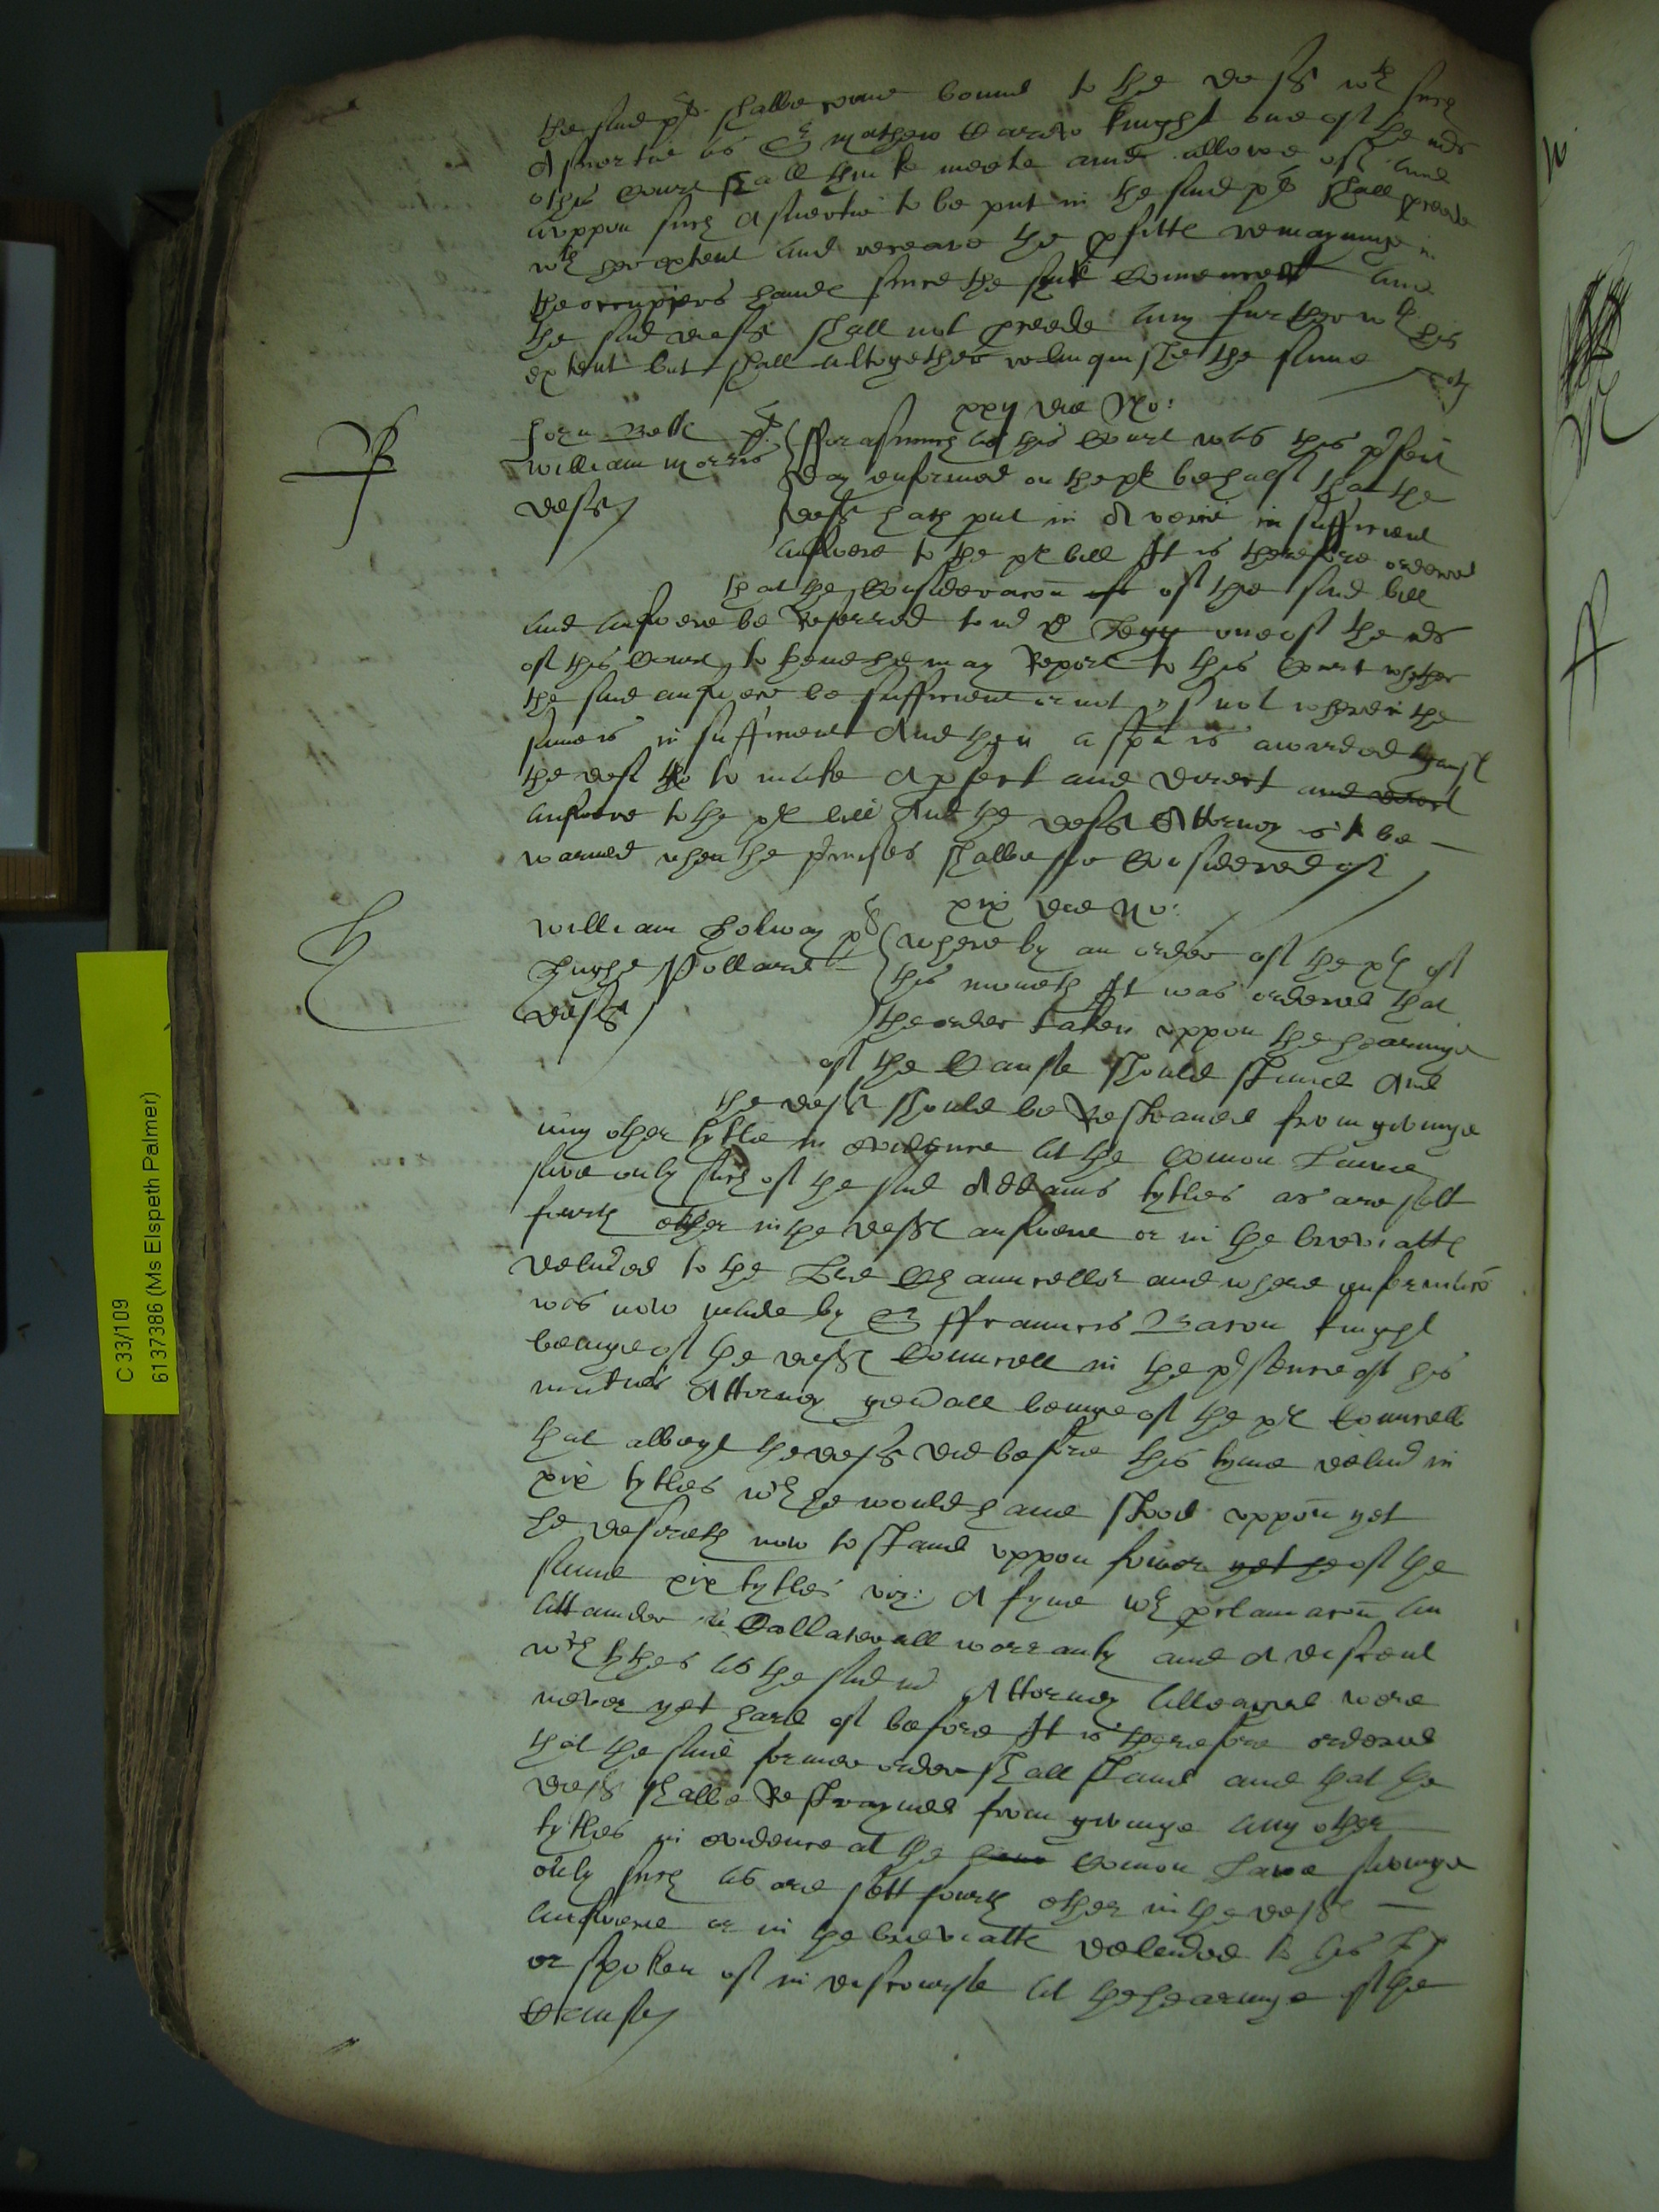 the said pl shalbe come bound to the deft wth such
A suertie as Sr Mathew Carew knight one of the mrs
of this Court shall thinke meete and allowe of and
uppon such A suertie to be put in the said pl shall procede
wth her extent and receave the pfitte remayninge in
the occupiers hande since the suit Comenced And
the said deft shall not procede any further wth his
extent but shall altogether relinquishe the same
xxij die No:
John Bett pl
William Morris
deft
fforasmuch as this Court was this pñt
day enformed on the pl behalf that the
deft hath put in A verie insufficient
answere to the pl bill It is therefore ordered
that the Consideracon of of the said bill
and answere be Referred to mr D Legg one of the mrs
of this Court, to thend he may Report to this Court whether
the said answere be sufficient or not yf not wherein the
same is insufficient And then a spa is awarded against
the deft to make A pfect and direct and direct
answere to the pl bill And the defte Attorney is to be
warned when the pmisses shalbe soe Considered of
xix die No:
William Holway pl
Hughe Pollard
deft
where by an order of the xth of
this moneth It was ordered that
the order taken uppon the hearinge
of the Cause should stand And
the deft should be Restrained from gevinge
any other tytle in evidence at the Comon Lawe
save only such of the said Addams tytles as are sett
fourth ether in the defte answere or in the breviatte
delivred to the Lord Chauncellor and where informacon
was now made by Sr ffrauncis Bacon knyght
beinge of the defte Councell in the psence of his
maties Attorney gerall beinge of the pl Councell
that albeyt the deft did before this tyme deliver in
xix tytles wch he would have stood uppon yet
he desireth now to stand uppon fower yet he of the
same xix tytles viz: A fyne wth proclamacon An
attainder A Collaterall warranty and A discent
wch tytles as the said mr Attorney alleadged were
never yet hard of before It is therefore ordered
that the said former order shall stand and that the
deft shalbe Restrayned from gevinge any other
tytles in evidence at the Comon Lawe savinge
only such as are sett fourth ether in the defte
answere or in the breviatte delivred to his Lp
or spoken of in discourse at the hearinge of the
Cause
C 33/109
6137386 (Ms Elspeth Palmer)